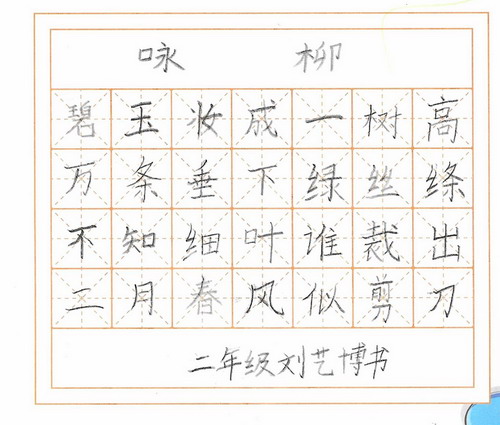 咏 柳
碧玉妆成一树高
万条垂下绿丝绦
不知细叶谁裁出
二月春风似剪刀
二年级刘艺博书